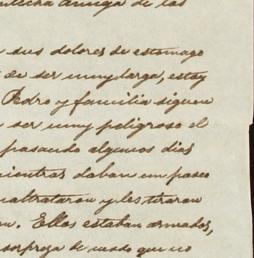 amiga de las
sus dolores de estomago
de ser muy larga, estoy
Pedro y familia siguen
ser muy peligroso el
pasando algunos dias
mientras daban un paseo
maltrataron y les tiraron
Ellos estaban armados,
sorpresa de modo que no